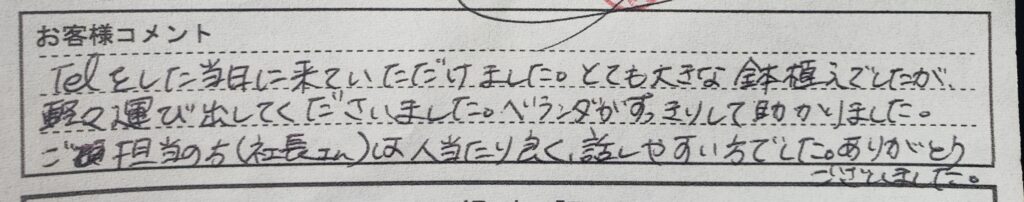 お客様コメント
Telをした当日に来ていただけました。とても大きな鉢植えでしたが、
軽々運び出してくださいました。ベランダがすっきりして助かりました。
ご担当の方(社長さん)は人当たり良く、話しやすい方でした。ありがとう
ございました。